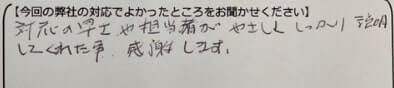 【今回の弊社の対応でよかったところをお聞かせください】
対応の早さや担当者がやさしく しっかり 説明
してくれた事、感謝します。